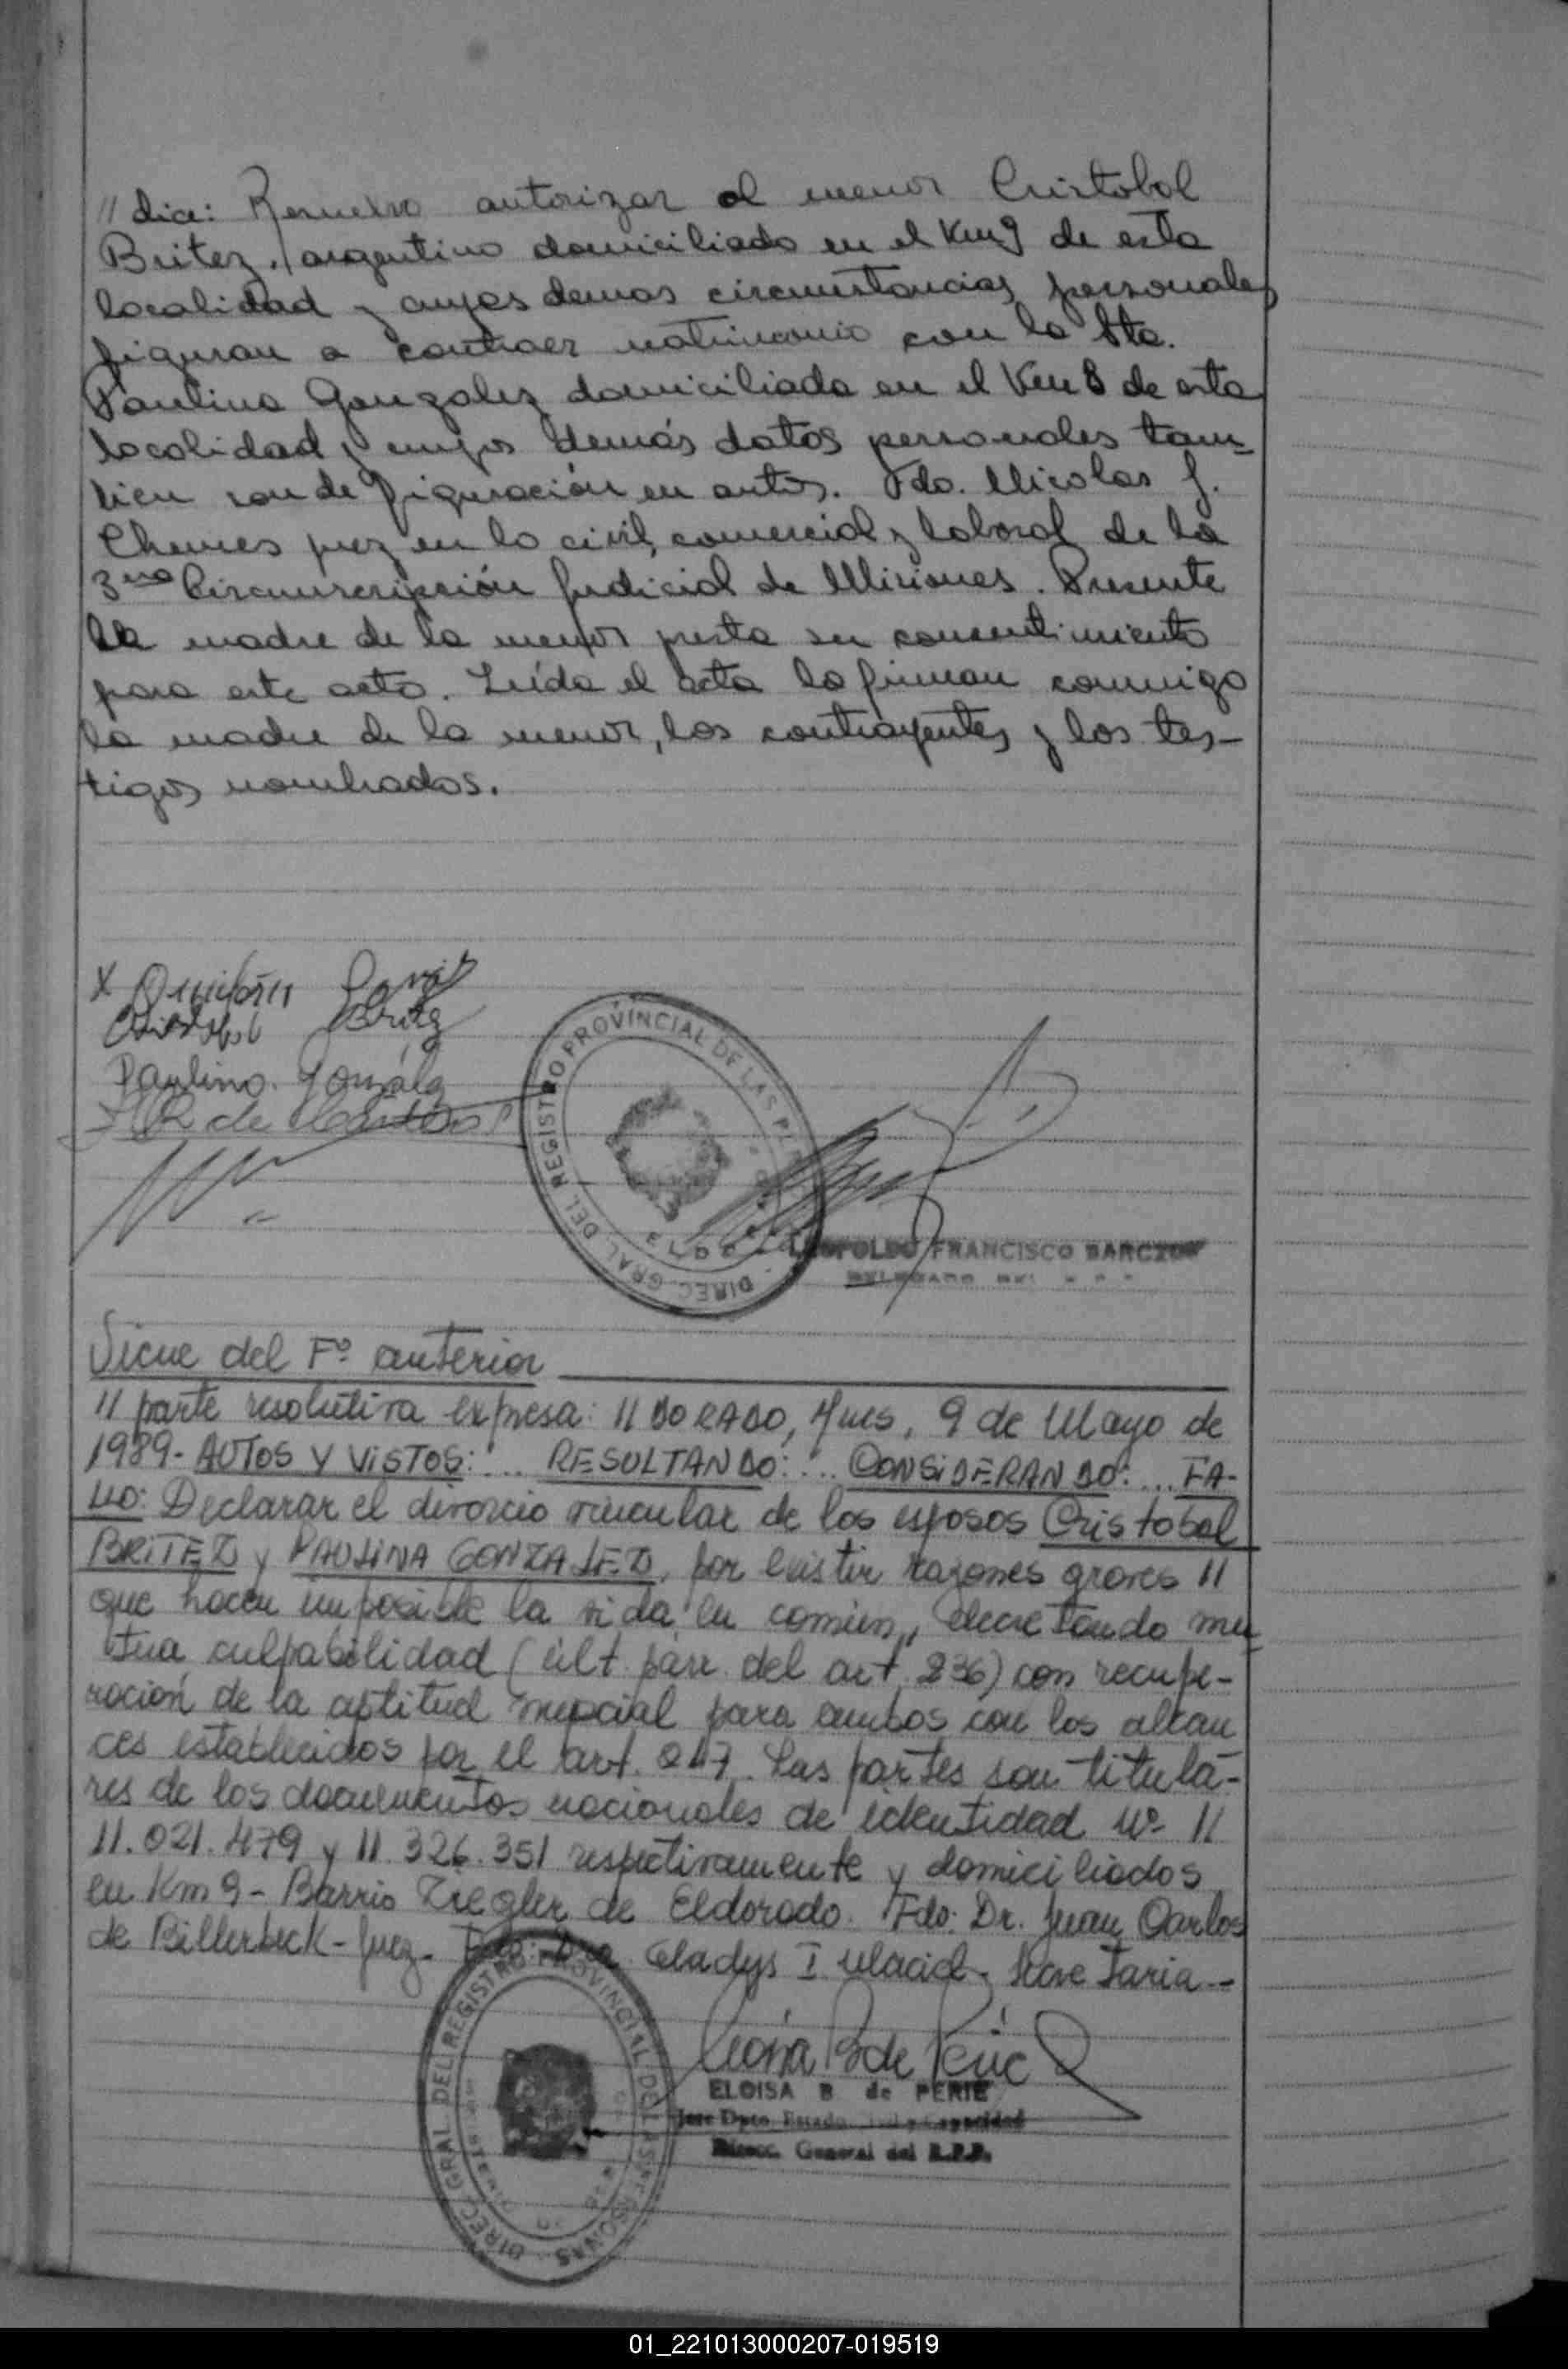 // dice: Resuelvo autorizar al menor Cristobal
Britez, argentino domiciliado en el Km 9 de esta
localidad y cuyas demas circunstancias personales
figuran a contraer matrimonio con la Sta.
Paulina Gonzalez domiciliada en el Km 8 de esta
localidad y cuyos demás datos personales tam-
bien son de figuración en autos. Fdo. Nicolas J.
Chemes juez en lo civil, comercial y laboral de la
3ra Circunscripción Judicial de Misiones. Presente
la madre de la menor presta su consentimiento
para este acto. Leída el acta la firman conmigo
la madre de la menor, los contrayentes y los tes-
tigos nombrados.
X
Cristobal Britez
Paulina Gonzálz
DIREC. GRAL. DEL REGISTRO PROVINCIAL DE LAS
LEOPOLDO FRANCISCO BARCZUK
DELEGADO
Viene del Fº anterior
// parte resolutiva expresa: // DORADO, Mnes, 9 de Mayo de
1989 - AUTOS Y VISTOS: ... RESULTANDO: ... CONSIDERANDO: ... FA-
LLO: Declarar el divorcio vincular de los esposos Cristobal
BRITEZ y PAULINA GONZALEZ, por existir razones graves //
que hacen imposible la vida en común, decretando mu-
tua culpabilidad (últ. párr. del art. 236) con recupe-
ración de la aptitud nupcial para ambos con los alcan
ces establecidos por el art. 217. Las partes son titula-
res de los documentos nacionales de identidad Nº //
11.021.479 y 11.326.351 respectivamente y domiciliados
en Km 9 - Barrio Ziegler de Eldorado. Fdo: Dr. Juan Carlos
de Billerbeck - Juez - Fdo: Dra. Gladys I. Secretaria -
DIREC. GRAL. DEL REGISTRO PROVINCIAL DE LAS PERSONAS
ELOISA B de PERIE
Jefe Dpto. Estado Civil y Capacidad
Direcc. General del R.P.P.
01_221013000207-019519